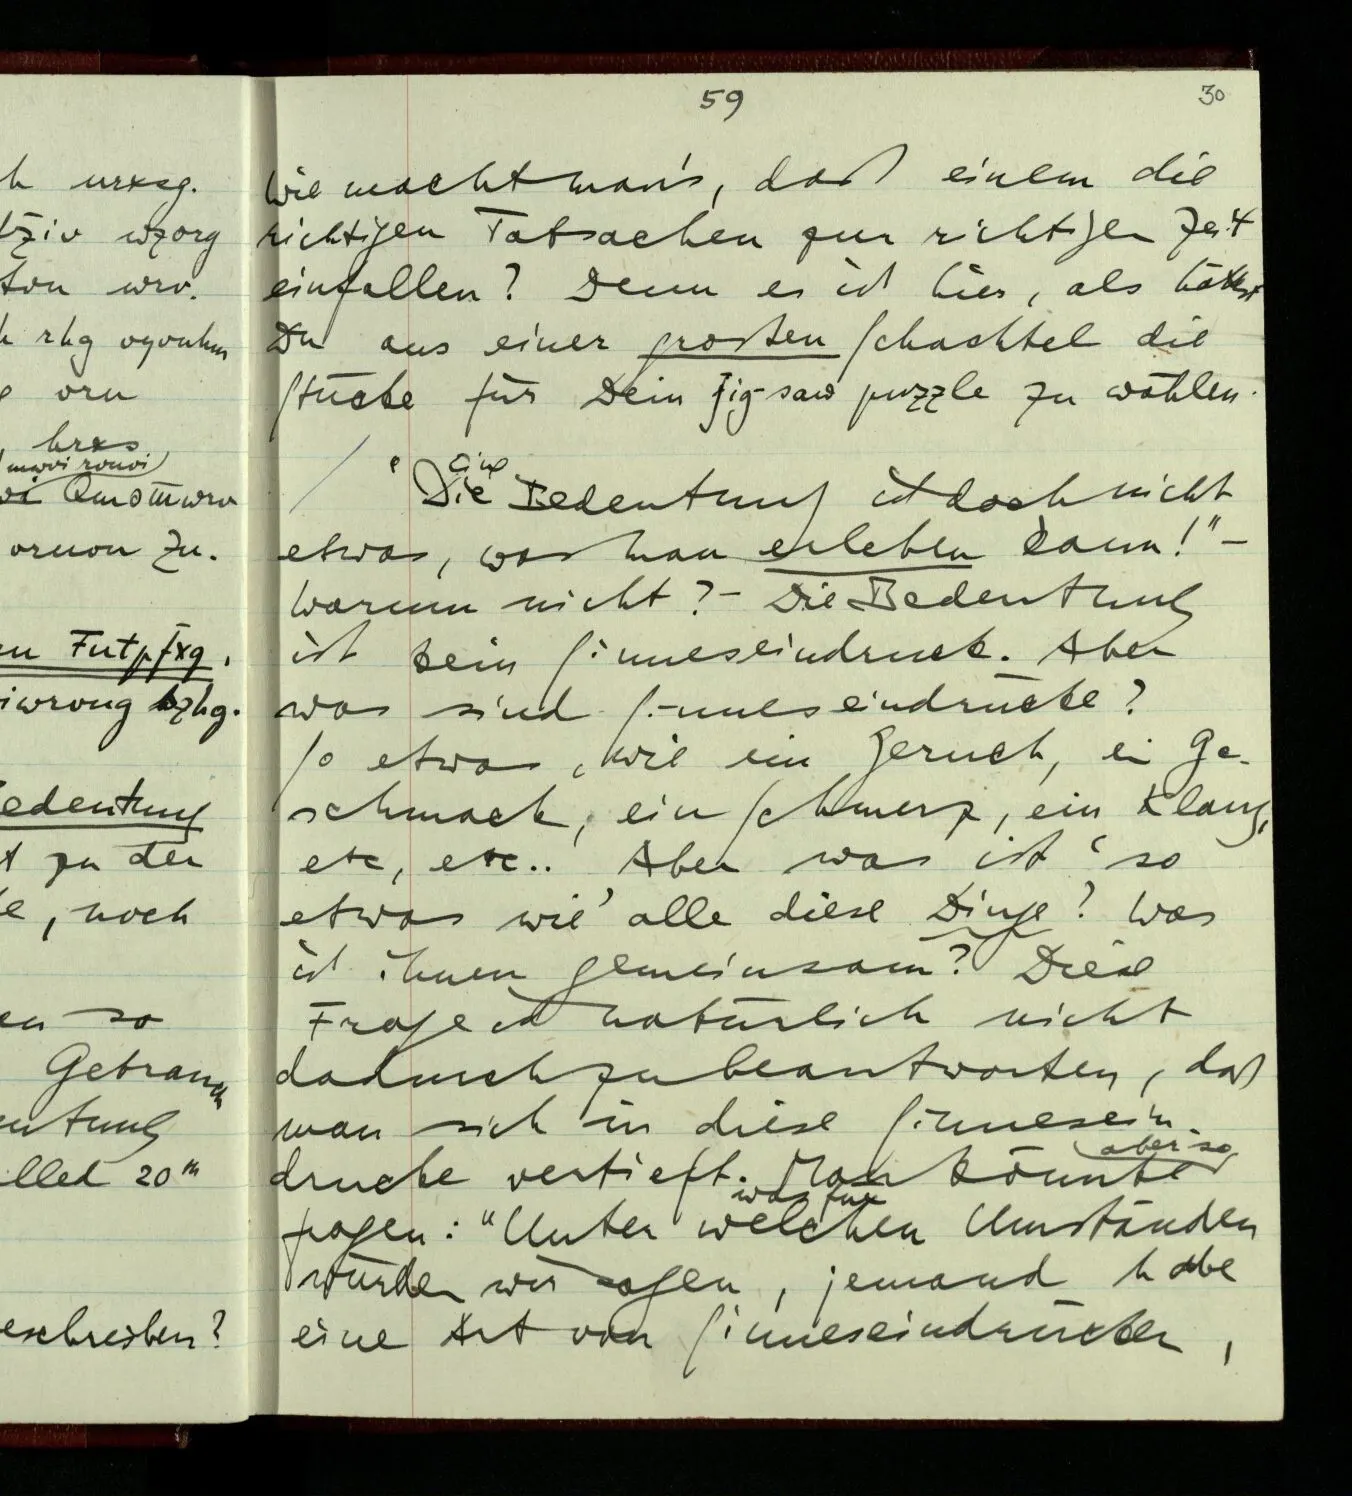 59
30
Wie macht man's, daß einem die
richtigen Tatsachen zur richtigen Zeit
einfallen? Denn es ist hier, als hättest
Du aus einer großen Schachtel die
Stücke für Dein Jig-saw puzzle zu wählen.
eine
/ "Die Bedeutung ist doch nicht
etwas, was man erleben kann!" –
Warum nicht? – Die Bedeutung
ist kein Sinneseindruck. Aber
was sind Sinneseindrücke?
So etwas, wie ein Geruch, ein Ge-
schmack, ein Schmerz, ein Klang,
etc, etc.. Aber was ist 'so
etwas wie' alle diese Dinge? Was
ist ihnen gemeinsam? Diese
Frage ist natürlich nicht
dadurch zu beantworten, daß
man sich in diese Sinnesein-
aber so
drücke vertieft. Man könnte
was für
fragen: "Unter welchen Umständen
würden wir sagen, jemand habe
eine Art von Sinneseindrücken,
h urxsg.
wzorg
wrv.
rhg
oru
hrxs
zu.
Bedeutung
t zu der
e, noch
en so
Gebrauch
eutung
lled 20th
eschreiben?